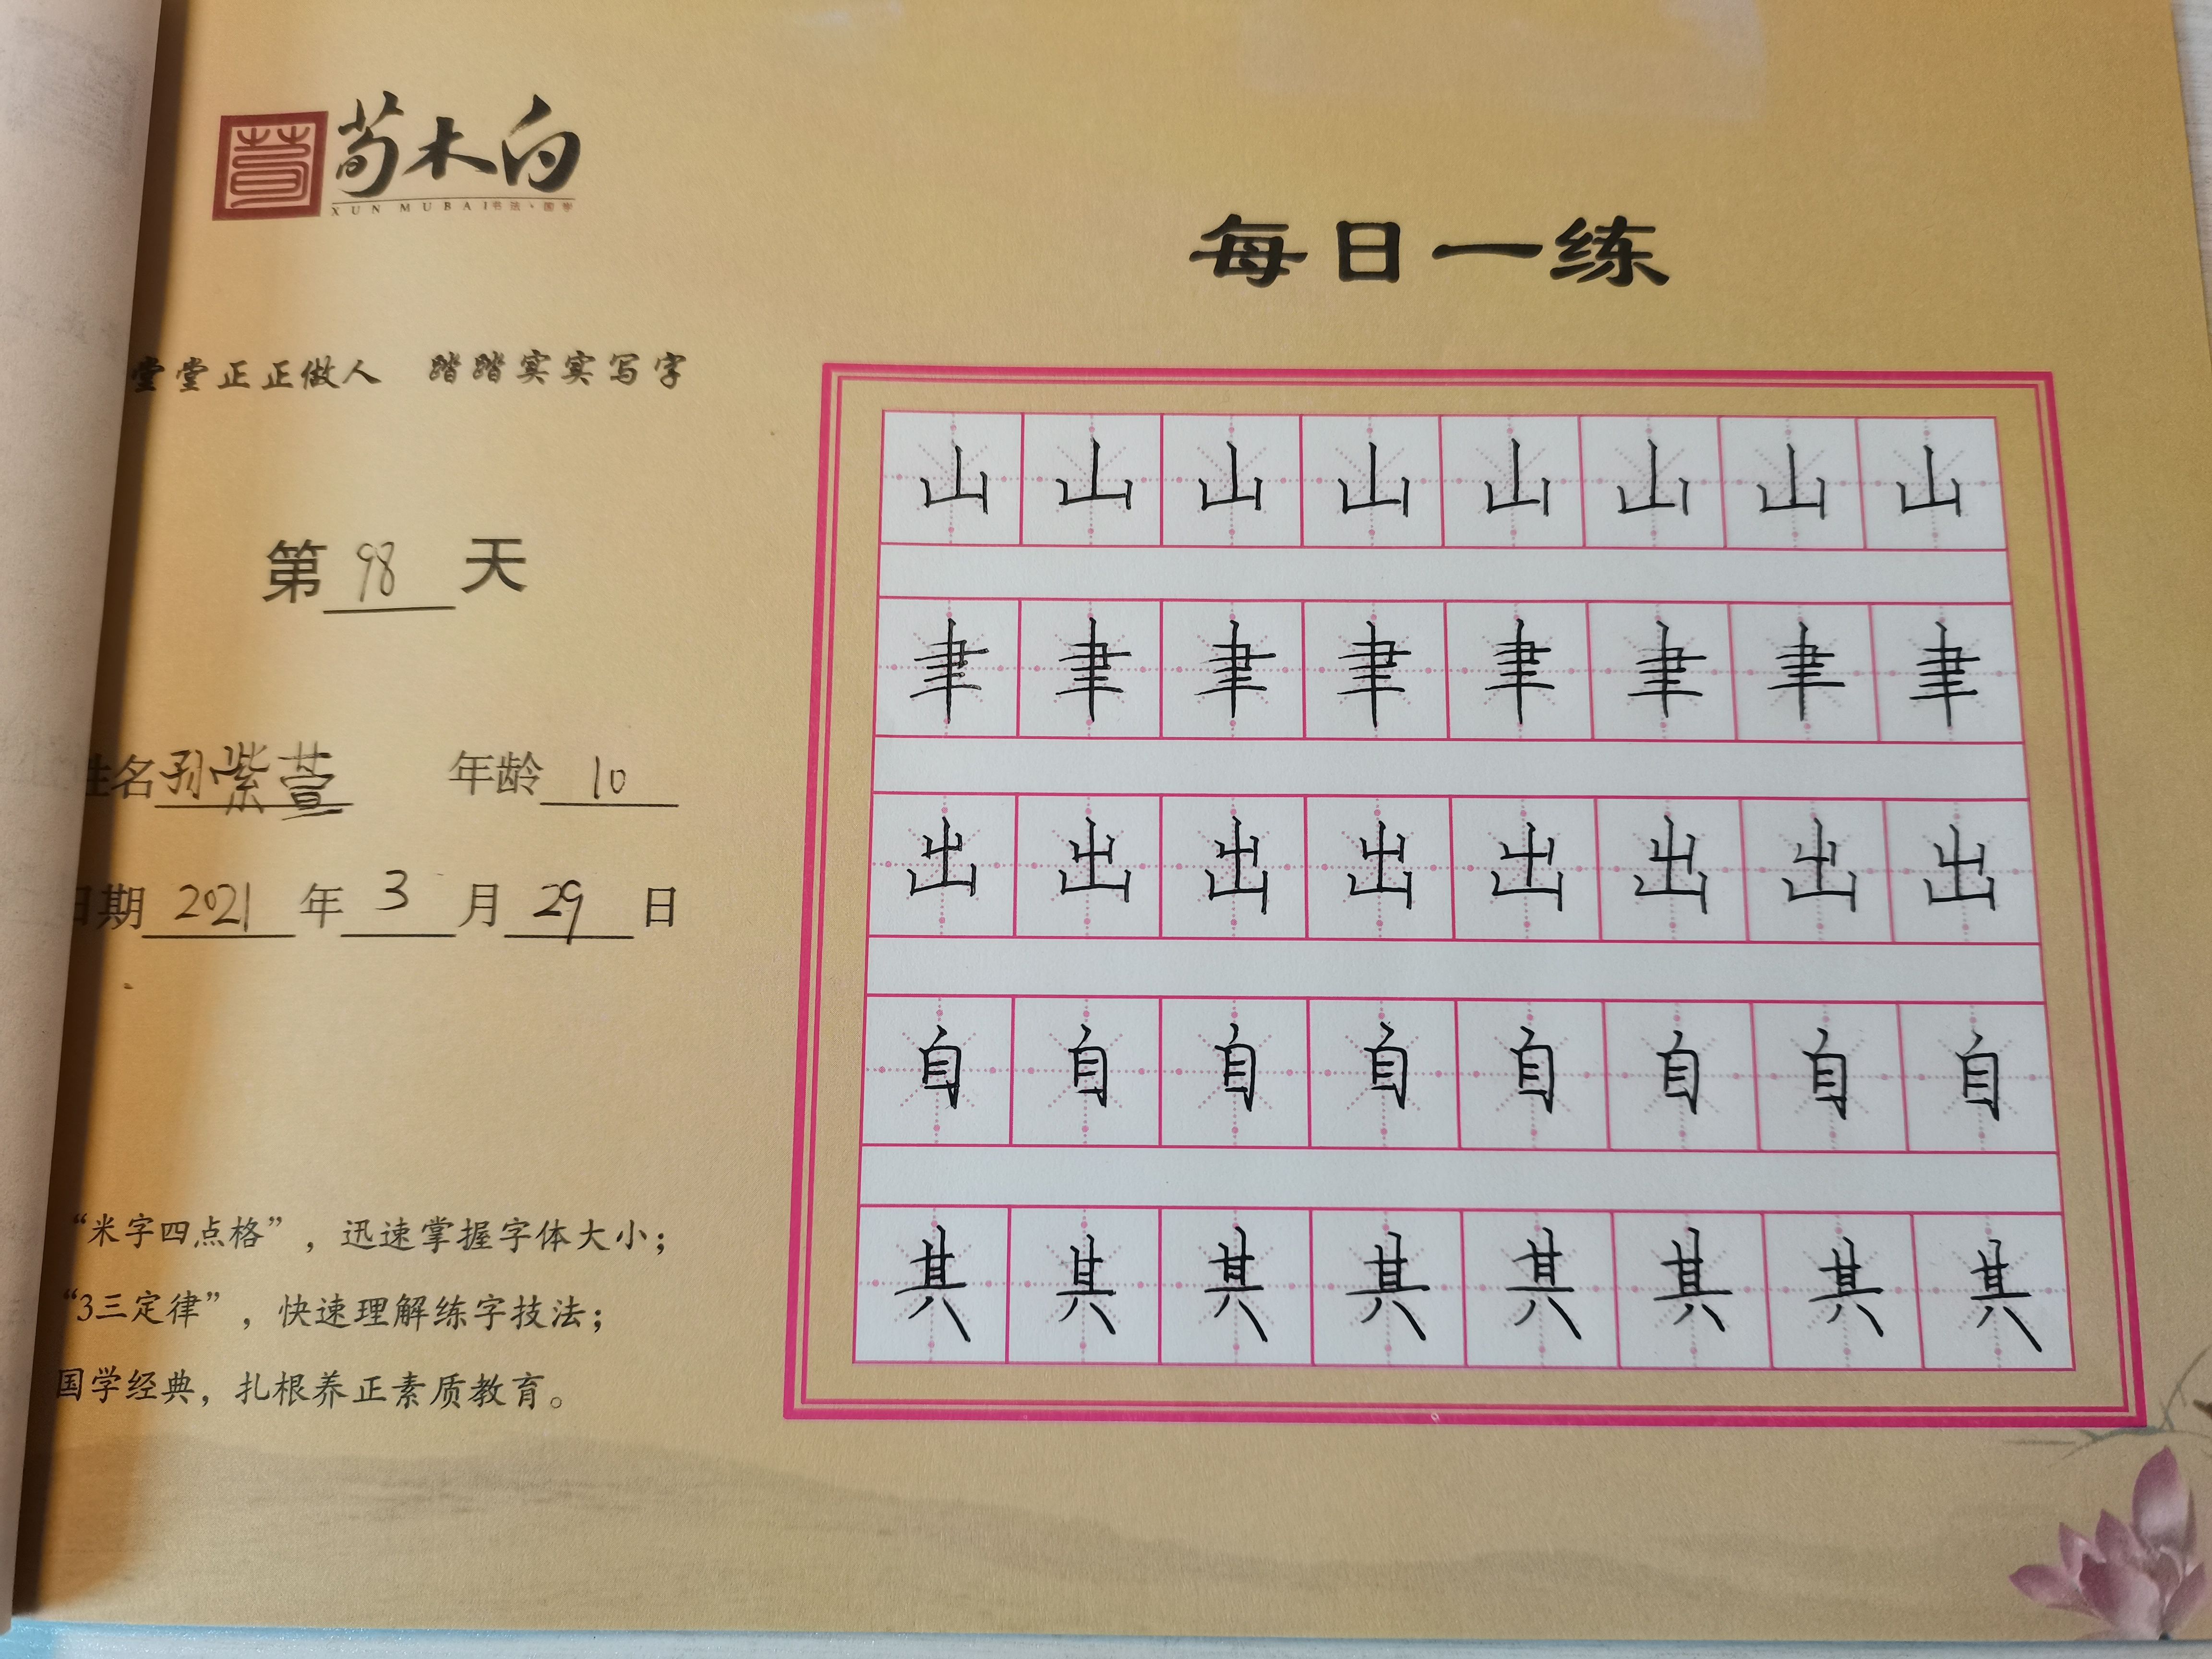 荀木白
XUN MUBAI书法·国学
每日一练
堂堂正正做人 踏踏实实写字
第 98 天
姓名 孙紫萱 年龄 10
日期 2021 年 3 月 29 日
“米字四点格”，迅速掌握字体大小；
“3三定律”，快速理解练字技法；
国学经典，扎根养正素质教育。
山 山 山 山 山 山 山 山
聿 聿 聿 聿 聿 聿 聿 聿
出 出 出 出 出 出 出 出
自 自 自 自 自 自 自 自
其 其 其 其 其 其 其 其